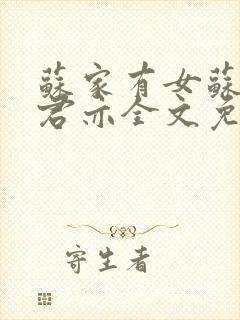 蘇家有女蘇
君亦全文免
寄生者